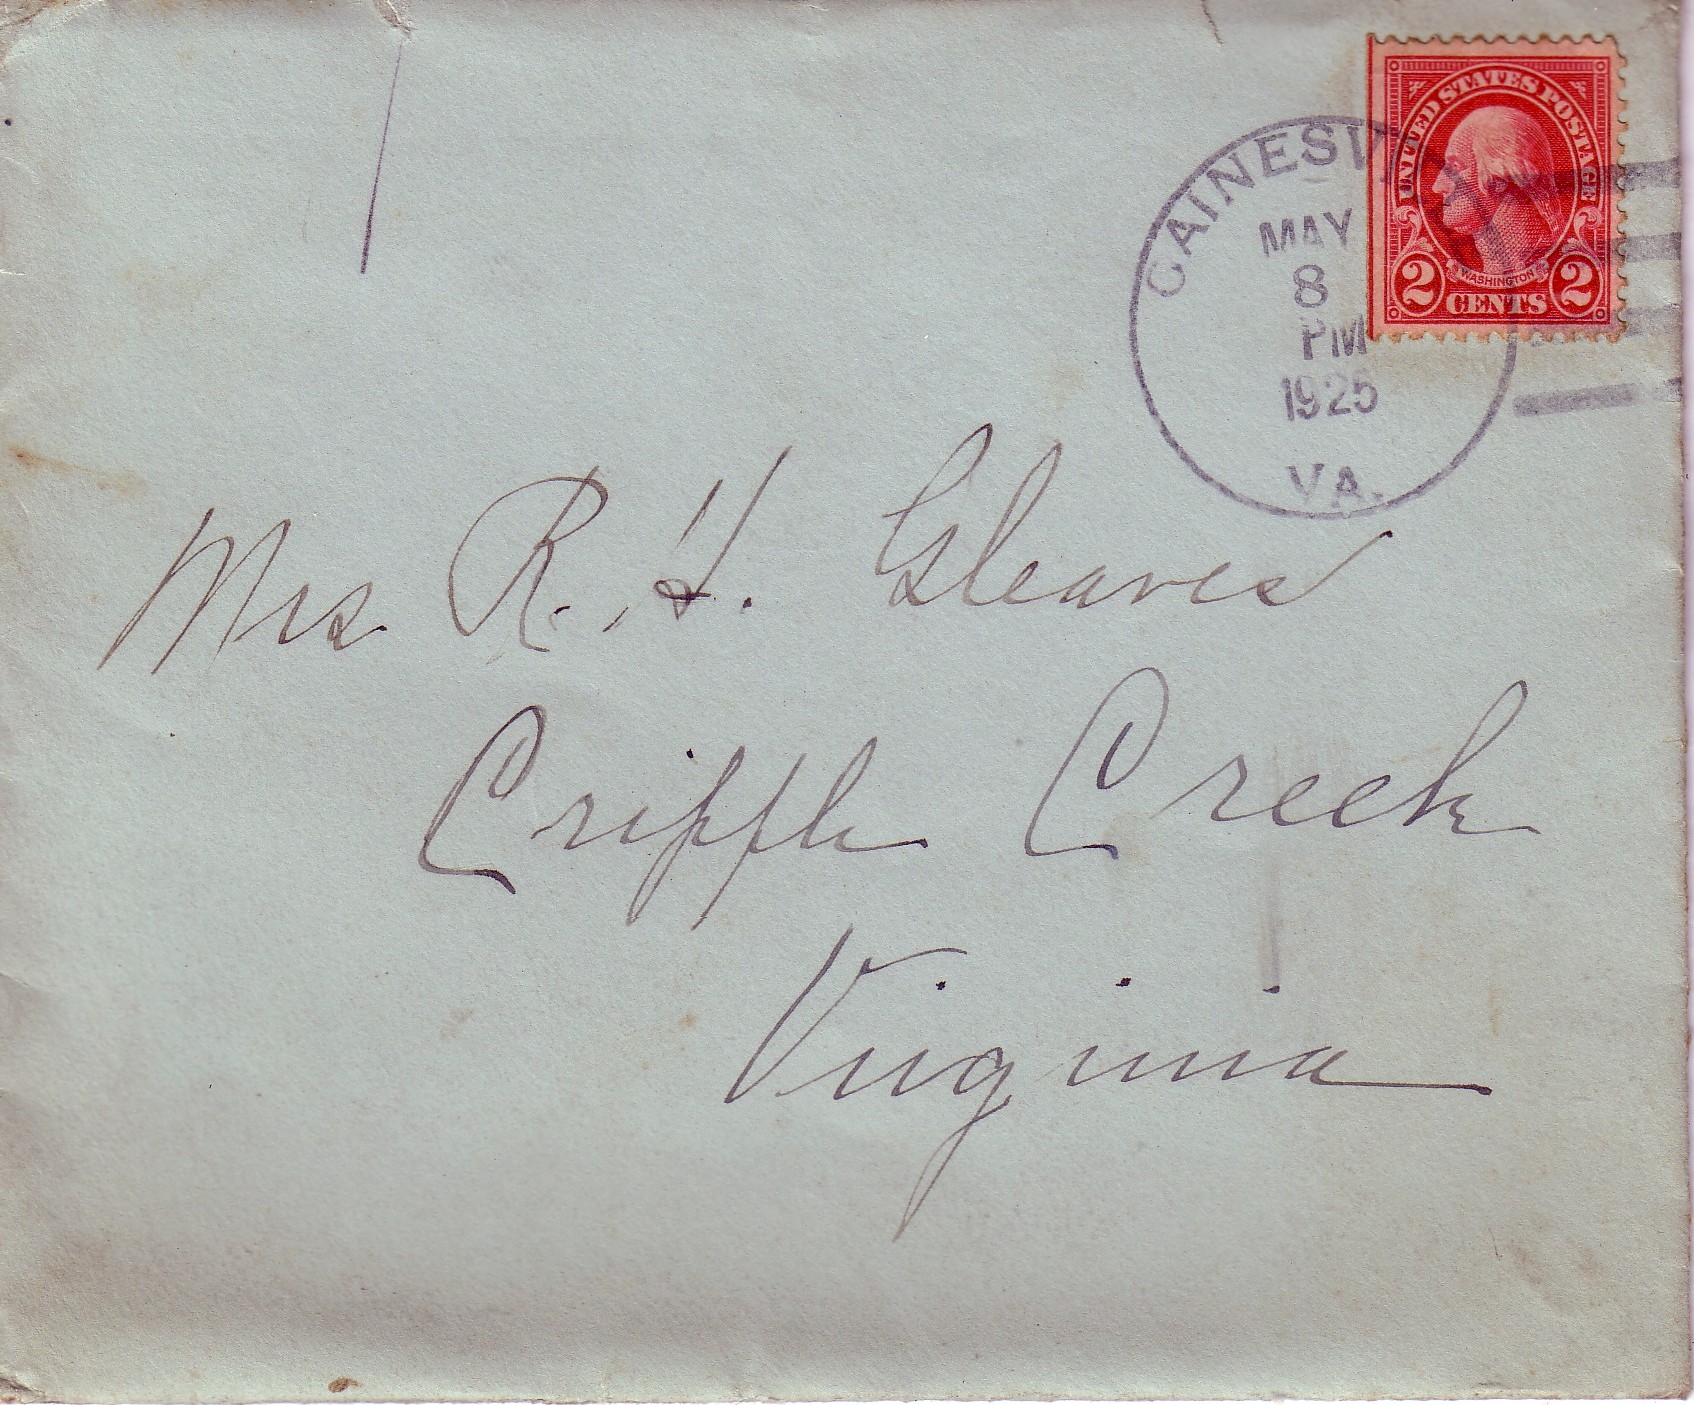 UNITED STATES POSTAGE
WASHINGTON
2 CENTS 2
MAY
8
PM
1925
VA.
Mrs R. H. Gleaves
Cripple Creek
Virginia